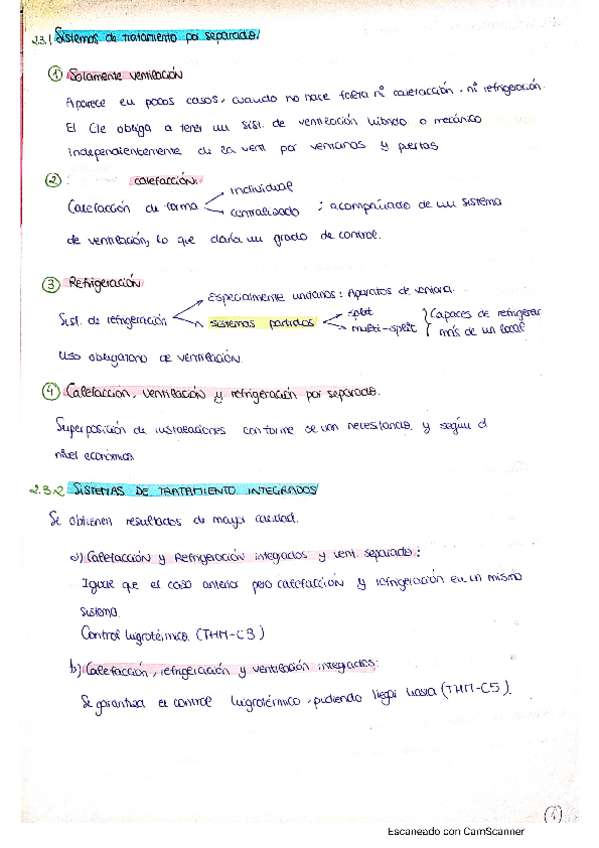 2.3.1 Sistemas de tratamiento por separado.
① Solamente ventilación
Aparece en pocos casos, cuando no hace falta ni calefacción, ni refrigeración.
El Cte obliga a tener un sist. de ventilación híbrido o mecánico
independientemente de la vent por ventanas y puertas
② calefacción.
Calefacción de forma individual
centralizado : acompañado de un sistema
de ventilación, lo que daría un grado de control.
③ Refrigeración
Especialmente unitarios: Aparatos de ventana.
Sist. de refrigeración sistemas partidos split
multi-split } Capaces de refrigerar
más de un local
Uso obligatorio de ventilación.
④ Calefacción, ventilación y refrigeración por separado.
Superposición de instalaciones conforme se van necesitando y según el
nivel económico.
2.3.2 SISTEMAS DE TRATAMIENTO INTEGRADOS
Se obtienen resultados de mayor calidad.
a) Calefacción y Refrigeración integados y vent. separado:
Igual que el caso anterior pero calefacción y refrigeración en un mismo
sistema.
Control higrotérmico. (THM-C3)
b) Calefacción, refrigeración y ventilación integrados:
Se garantiza el control higrotérmico, pudiendo llegar hasta (THM-C5).
(1)
Escaneado con CamScanner